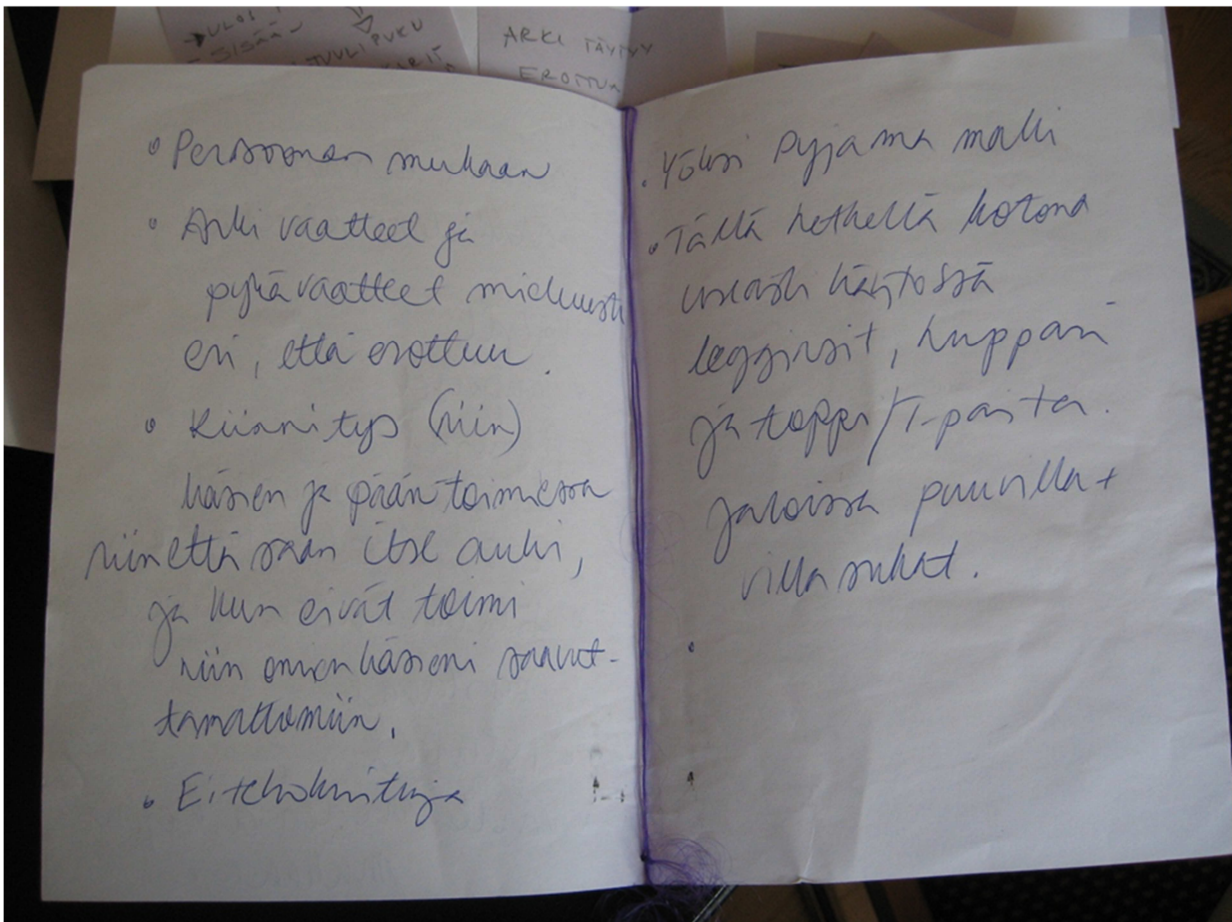 →ULOS
- SISÄÄ -
TUULIPUKU
ARKI TÄYTYY
EROTTUA
Persoonan mukaan
Arki vaatteet ja
pyhävaatteet mieluusti
eri, että erottuu.
Kiinnitys (niin)
käsien ja pään toimiessa
niin että saan itse auki,
ja kun eivät toimi
niin omien käsieni saavut-
tamattomiin.
Ei tekokuituja
Yöksi Pyjama malli
Tällä hetkellä kotona
useasti käytössä
legginsit, huppari
ja toppi/T-paita.
jaloissa puuvilla+
villa sukat.